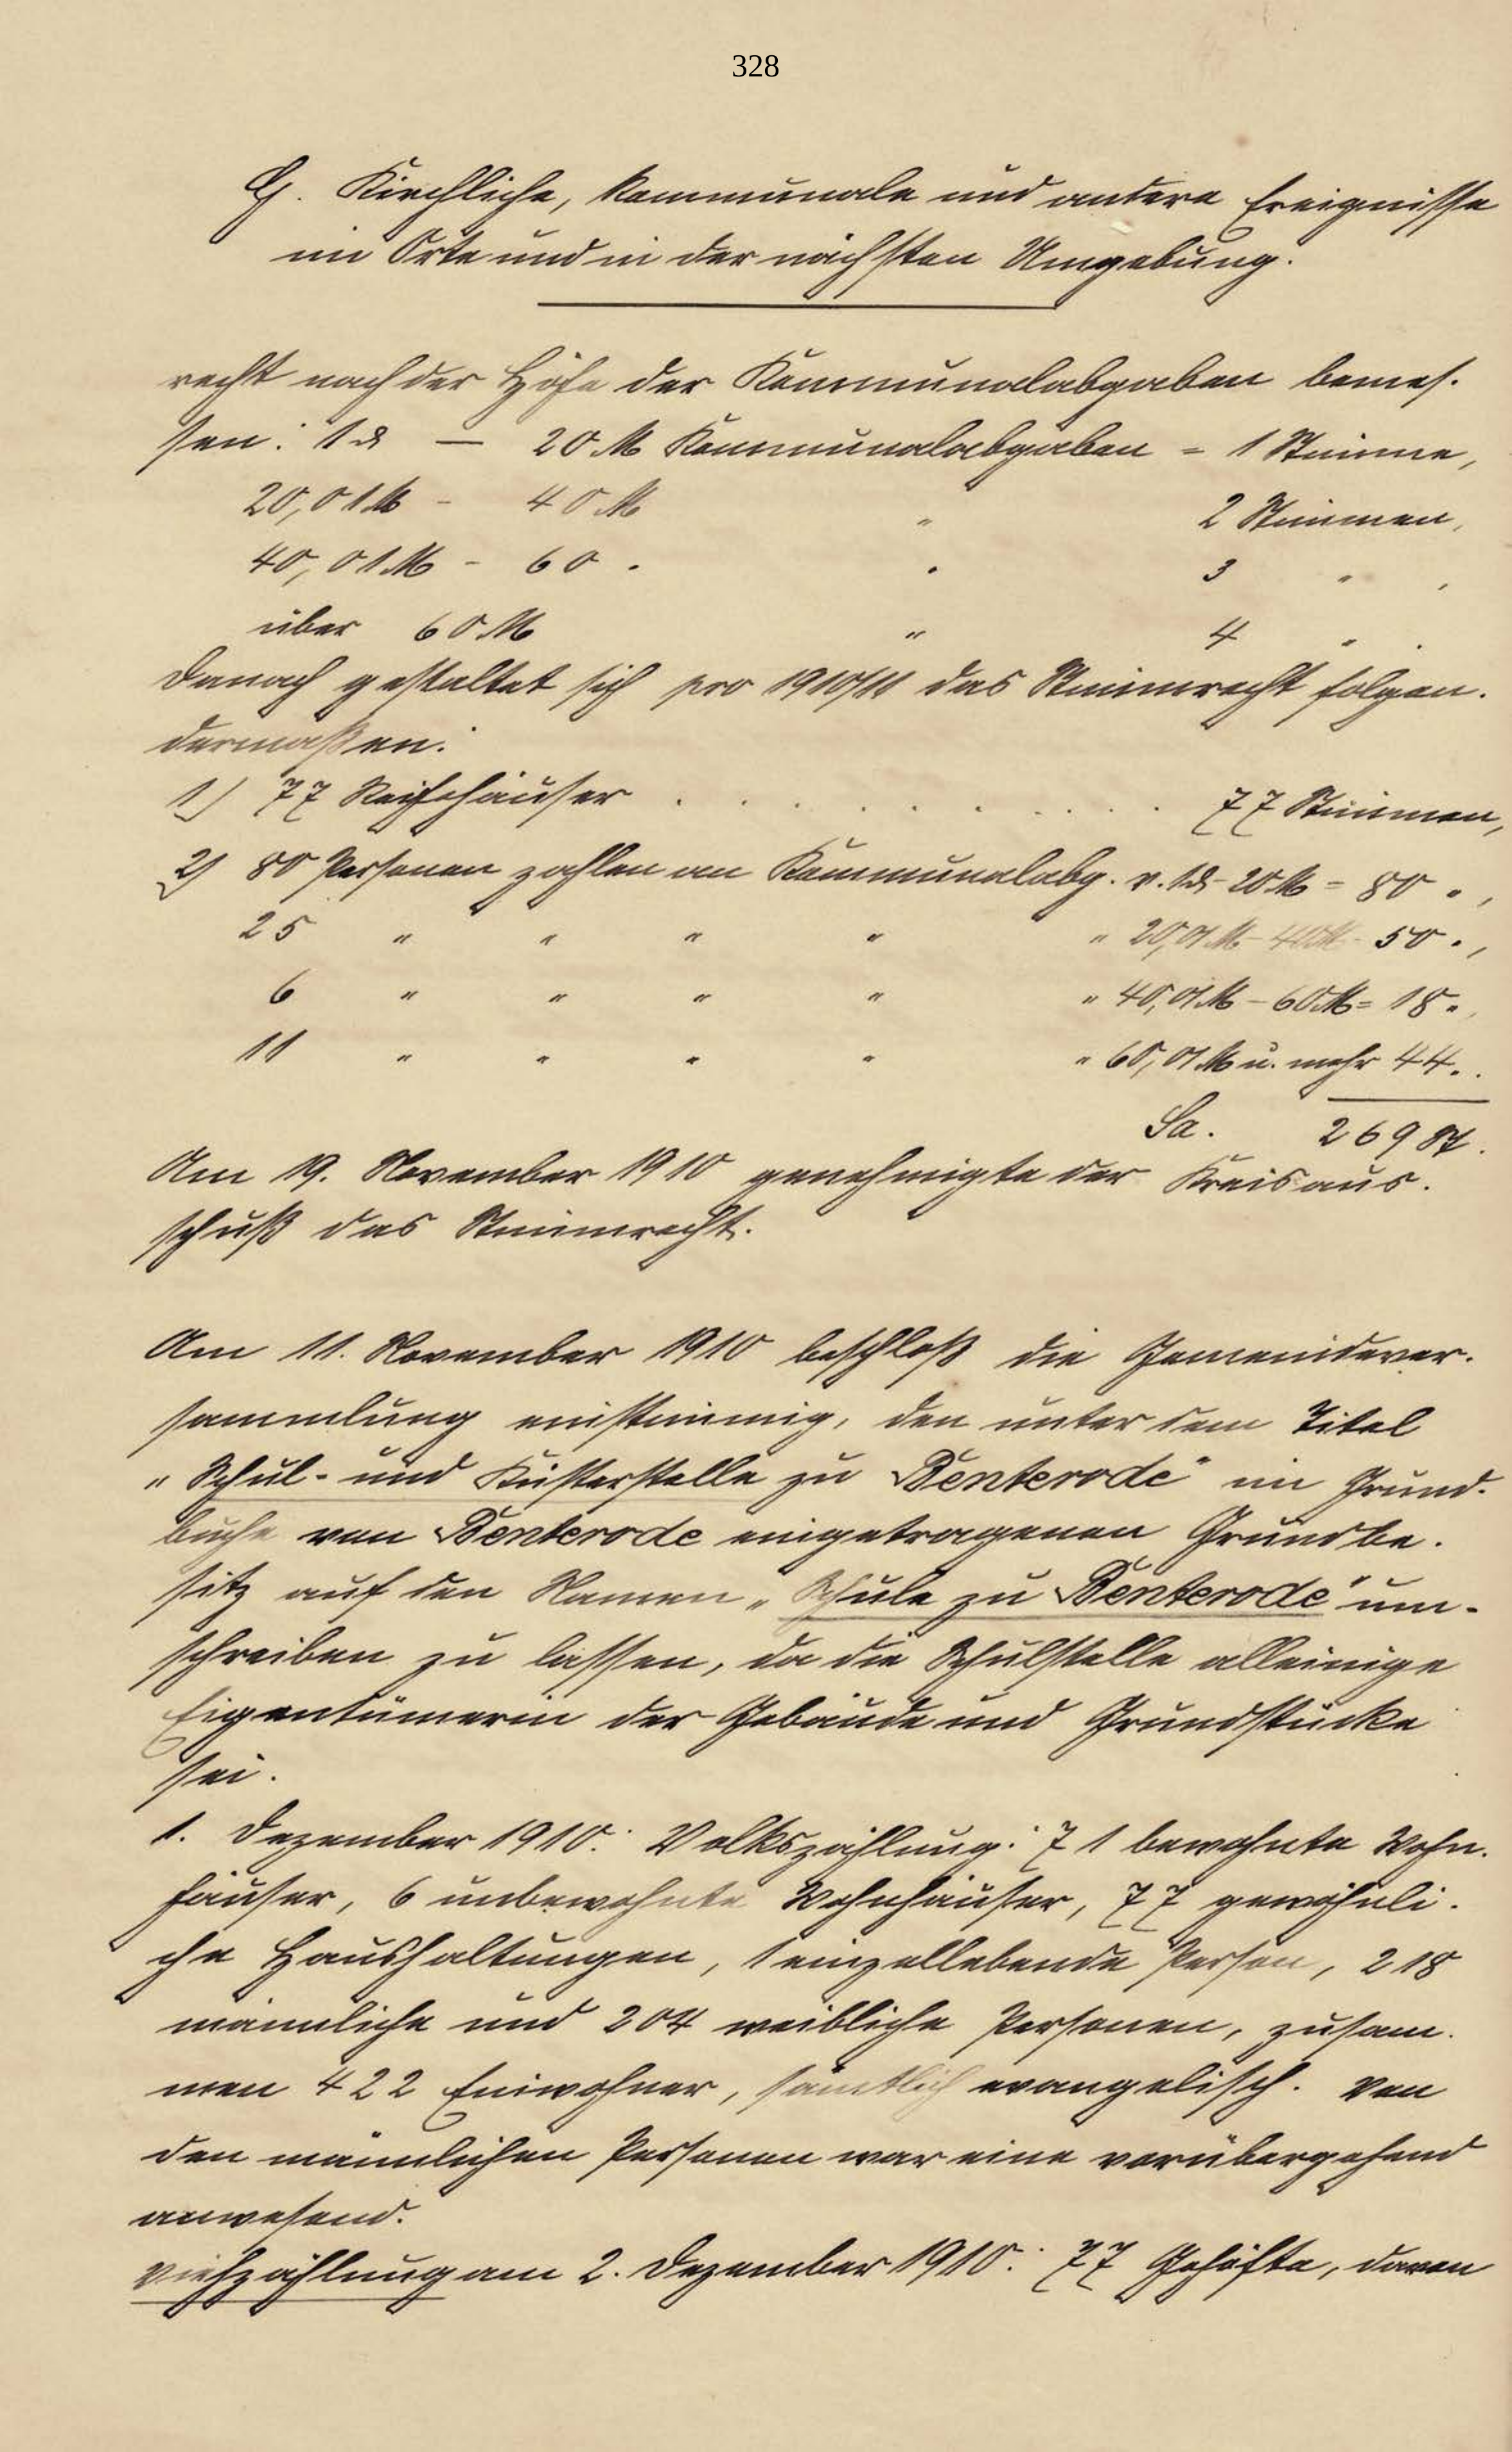 328
G. Kirchliche, kommunale und andere Ereignisse
im Orte und in der nächsten Umgebung.
recht nach der Höhe der Kommunalabgaben bemes-
sen: 1 ₰ — 20 M Kommunalabgaben = 1 Stimme,
20,01 M - 40 M " 2 Stimmen,
40,01 M - 60 " " 3 " ,
über 60 M " 4 " .
Danach gestaltet sich pro 1910/11 das Stimmrecht folgen-
dermaßen:
1) 77 Reihehäuser . . . . . . . . . 77 Stimmen,
2) 80 Personen zahlen an Kommunalabg. v. 1 ₰ - 20 M = 80 " ,
25 " " " " " 20,01 M - 40 M - 50 " ,
6 " " " " " 40,01 M - 60 M = 18 " ,
11 " " " " " 60,01 M u. mehr 44 " .
Sa. 269 St.
Am 19. November 1910 genehmigte der Kreisaus-
schuß das Stimmrecht.
Am 11. November 1910 beschloß die Gemeindever-
sammlung einstimmig, den unter dem Titel
„Schul- und Küsterstelle zu Benterode" im Grund-
buche von Benterode eingetragenen Grundbe-
sitz auf den Namen „Schule zu Benterode" um-
schreiben zu lassen, da die Schulstelle alleinige
Eigentümerin der Gebäude und Grundstücke
sei.
1. Dezember 1910: Volkszählung: 71 bewohnte Wohn-
häuser, 6 unbewohnte Wohnhäuser, 77 gewöhnli-
che Haushaltungen, 1 einzellebende Person, 218
männliche und 204 weibliche Personen, zusam-
men 422 Einwohner, sämtlich evangelisch. Von
den männlichen Personen war eine vorübergehend
anwesend.
Viehzählung am 2. Dezember 1910: 77 Gehöfte, davon